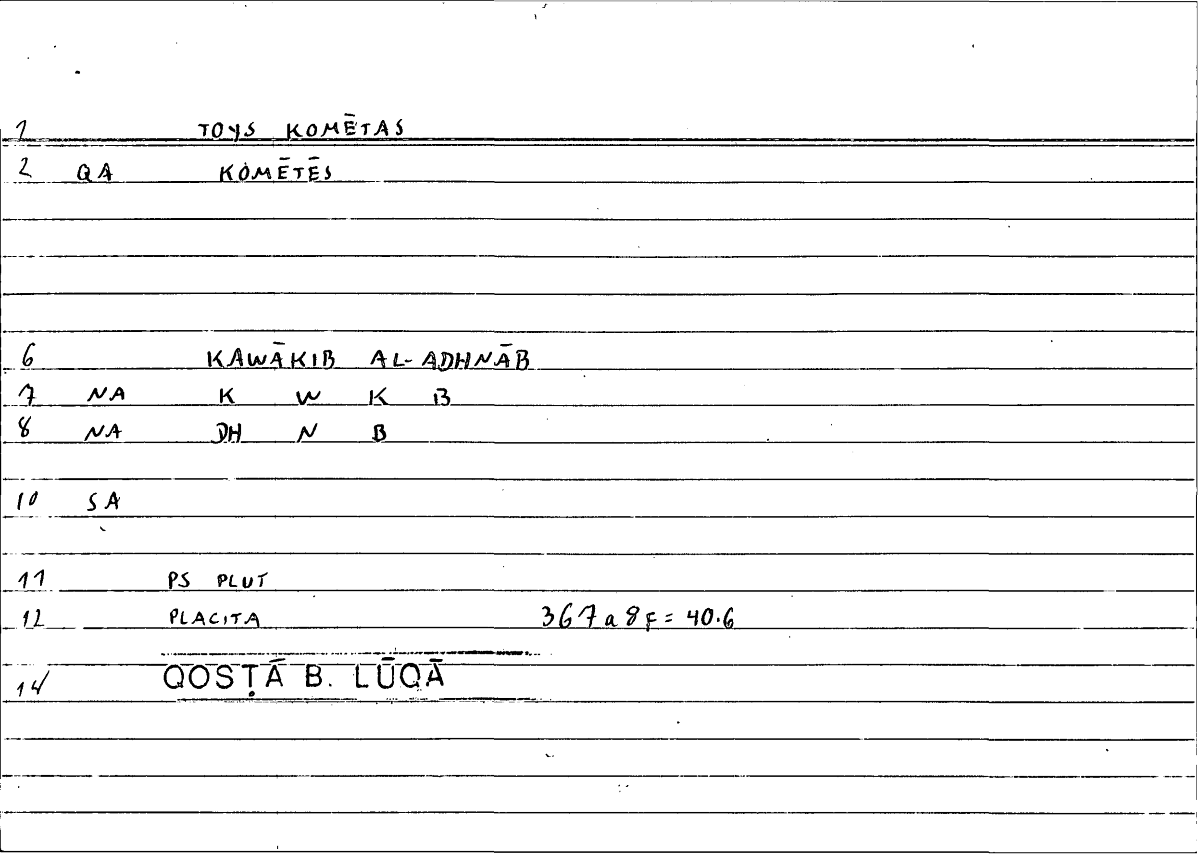 1 TOYS KOMĒTAS
2 QA KOMĒTĒS
6 KAWĀKIB AL-ADHNĀB
7 NA K W K B
8 NA DH N B
10 SA
11 PS PLUT
12 PLACITA 367a8f = 40.6
14 QOSṬĀ B. LŪQĀ